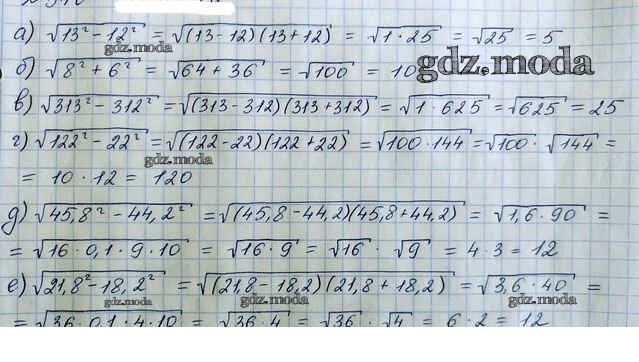 а) √13² - 12² = √(13-12)(13+12) = √1·25 = √25 = 5
gdz.moda
б) √8² + 6² = √64 + 36 = √100 = 10
gdz.moda
в) √313² - 312² = √(313-312)(313+312) = √1·625 = √625 = 25
г) √122² - 22² = √(122-22)(122+22) = √100·144 = √100 · √144 =
gdz.moda
= 10 · 12 = 120
д) √45,8² - 44,2² = √(45,8-44,2)(45,8+44,2) = √1,6·90 =
= √16·0,1·9·10 = √16·9 = √16 · √9 = 4·3 = 12
е) √21,8² - 18,2² = √(21,8-18,2)(21,8+18,2) = √3,6·40 =
gdz.moda gdz.moda gdz.moda
= √36·0,1·4·10 = √36·4 = √36 · √4 = 6·2 = 12